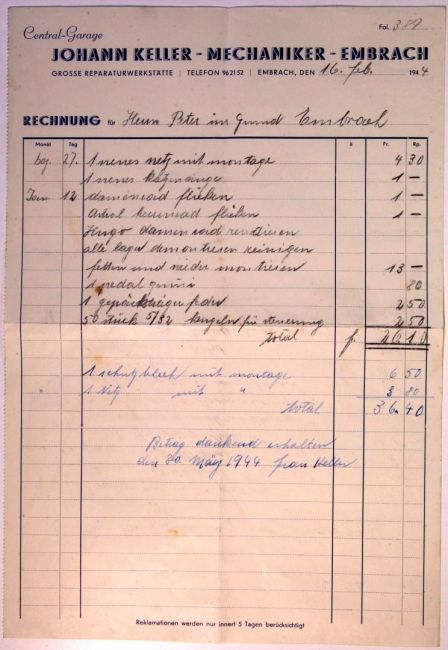 Central-Garage Fol. 387
JOHANN KELLER - MECHANIKER - EMBRACH
GROSSE REPARATURWERKSTÄTTE | TELEFON 962152 | EMBRACH, DEN 16. Feb. 1944
RECHNUNG für Herrn Peter im Grund Embrach
Monat Tag à Fr. Rp.
27. 1 neues netz mit montage 4 30
1 neues 1 —
Jan 12 damenrad flicken 1 —
flicken 1 —
Hugo damenrad
alle lager demontieren reinigen
fetten und wieder montieren 13 —
1 pedal gumi 80
1 gepäckträger feder 2 50
50 stück 5/32 kugeln für steuerung 2 50
total f. 26 10
1 schutzblech mit montage 6 50
1 Netz mit " 3 80
total 36. 40
Betrag dankend erhalten
den 30 März 1944 frau Keller
Reklamationen werden nur innert 5 Tagen berücksichtigt